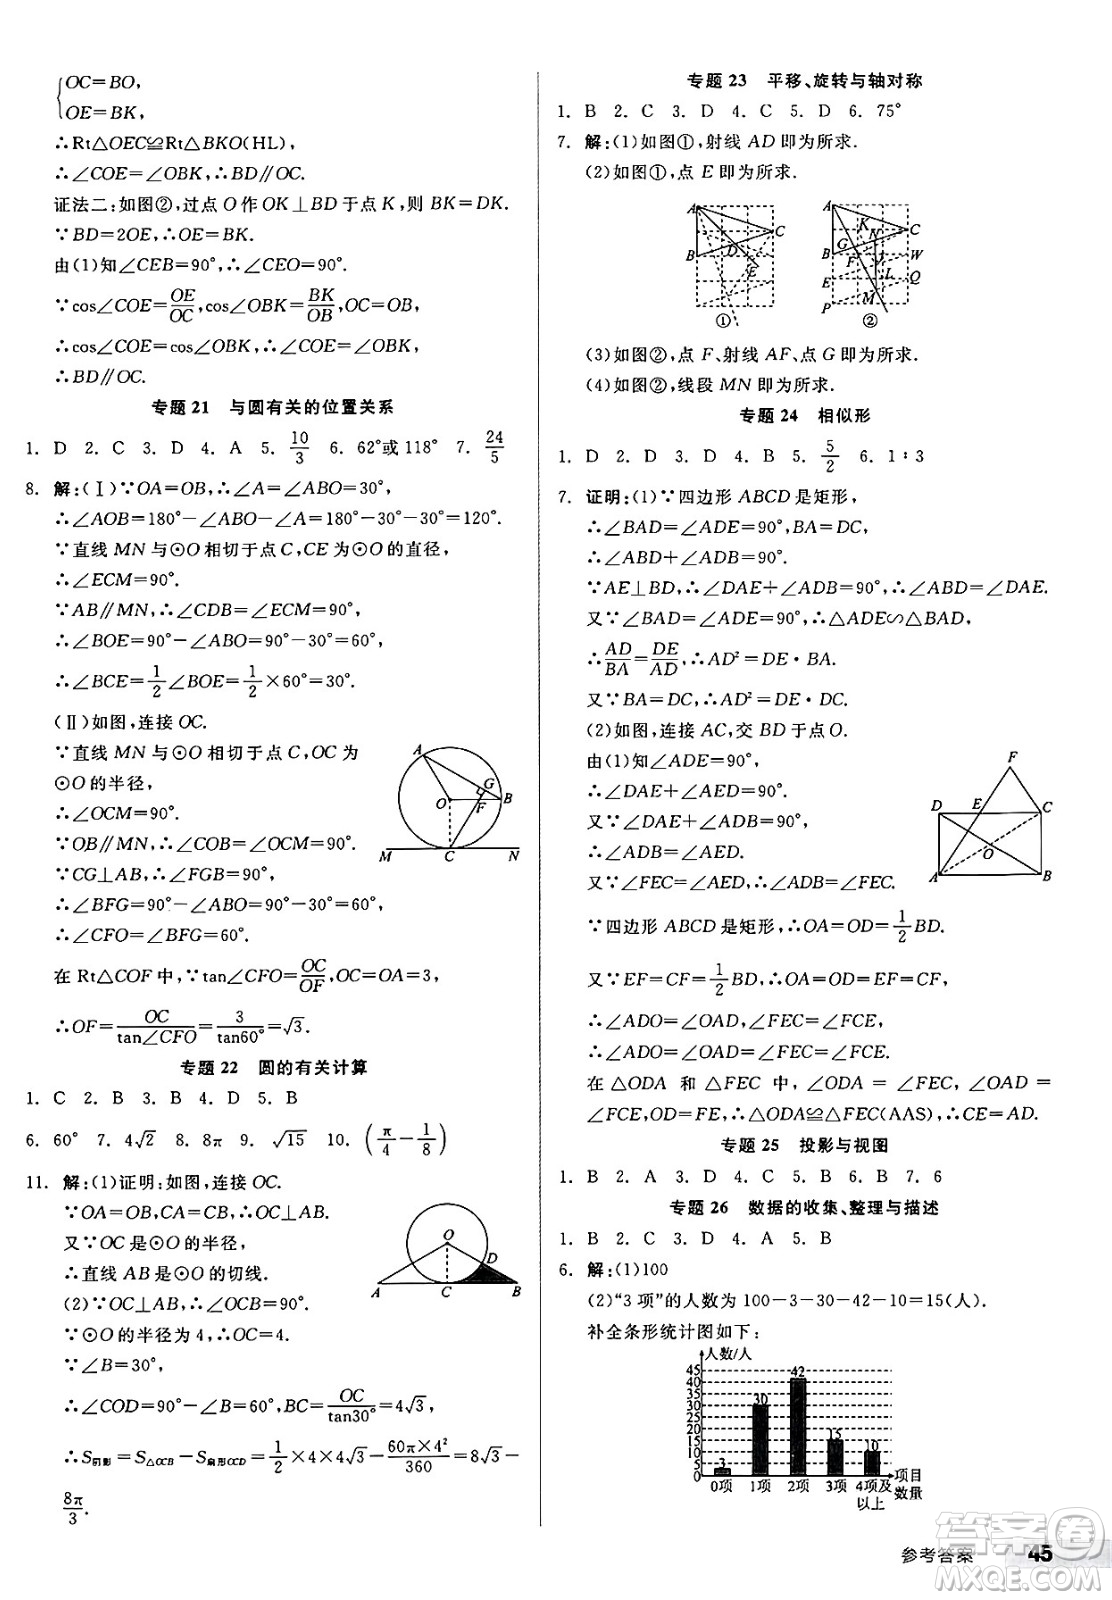 OC=BO,
OE=BK,
∴Rt△OEC≌Rt△BKO(HL),
∴∠COE=∠OBK,∴BD∥OC.
证法二:如图②,过点 O 作 OK⊥BD 于点 K,则 BK=DK.
∵BD=2OE,∴OE=BK.
由(1)知∠CEB=90°,∴∠CEO=90°.
∵cos∠COE=OE/OC,cos∠OBK=BK/OB,OC=OB,
∴cos∠COE=cos∠OBK,∴∠COE=∠OBK,
∴BD∥OC.
专题 21 与圆有关的位置关系
1. D 2. C 3. D 4. A 5. 10/3 6. 62°或 118° 7. 24/5
8. 解:(Ⅰ)∵OA=OB,∴∠A=∠ABO=30°,
∴∠AOB=180°-∠ABO-∠A=180°-30°-30°=120°.
∵直线 MN 与⊙O 相切于点 C,CE 为⊙O 的直径,
∴∠ECM=90°.
∵AB∥MN,∴∠CDB=∠ECM=90°,
∴∠BOE=90°-∠ABO=90°-30°=60°,
∴∠BCE=1/2∠BOE=1/2×60°=30°.
(Ⅱ)如图,连接 OC.
∵直线 MN 与⊙O 相切于点 C,OC 为
⊙O 的半径,
∴∠OCM=90°.
∵OB∥MN,∴∠COB=∠OCM=90°.
∵CG⊥AB,∴∠FGB=90°,
∴∠BFG=90°-∠ABO=90°-30°=60°,
∴∠CFO=∠BFG=60°.
在 Rt△COF 中,∵tan∠CFO=OC/OF,OC=OA=3,
∴OF=OC/tan∠CFO=3/tan60°=√3.
A
G
O
F
B
M
C
N
专题 22 圆的有关计算
1. C 2. B 3. B 4. D 5. B
6. 60° 7. 4√2 8. 8π 9. √15 10. (π/4-1/8)
11. 解:(1)证明:如图,连接 OC.
∵OA=OB,CA=CB,∴OC⊥AB.
又∵OC 是⊙O 的半径,
∴直线 AB 是⊙O 的切线.
(2)∵OC⊥AB,∴∠OCB=90°.
∵⊙O 的半径为 4,∴OC=4.
∵∠B=30°,
∴∠COD=90°-∠B=60°,BC=OC/tan30°=4√3,
∴S阴影=S△OCB-S扇形OCD=1/2×4×4√3-60π×4²/360=8√3-
8π/3.
O
D
A
C
B
专题 23 平移、旋转与轴对称
1. B 2. C 3. D 4. C 5. D 6. 75°
7. 解:(1)如图①,射线 AD 即为所求.
(2)如图①,点 E 即为所求.
A
C
B
D
E
①
A
K
C
N
B
G
F
J
W
E
L
Q
P
M
②
(3)如图②,点 F、射线 AF、点 G 即为所求.
(4)如图②,线段 MN 即为所求.
专题 24 相似形
1. D 2. D 3. D 4. B 5. 5/2 6. 1∶3
7. 证明:(1)∵四边形 ABCD 是矩形,
∴∠BAD=∠ADE=90°,BA=DC,
∴∠ABD+∠ADB=90°.
∵AE⊥BD,∴∠DAE+∠ADB=90°,∴∠ABD=∠DAE.
又∵∠BAD=∠ADE=90°,∴△ADE∽△BAD,
∴AD/BA=DE/AD,∴AD²=DE·BA.
又∵BA=DC,∴AD²=DE·DC.
(2)如图,连接 AC,交 BD 于点 O.
由(1)知∠ADE=90°,
∴∠DAE+∠AED=90°,
∴∠DAE+∠ADB=90°,
∴∠ADB=∠AED.
又∵∠FEC=∠AED,∴∠ADB=∠FEC.
∵四边形 ABCD 是矩形,∴OA=OD=1/2BD.
又∵EF=CF=1/2BD,∴OA=OD=EF=CF,
∴∠ADO=∠OAD,∠FEC=∠FCE,
∴∠ADO=∠OAD=∠FEC=∠FCE.
在 △ODA 和 △FEC 中,∵∠ODA=∠FEC,∠OAD=
∠FCE,OD=FE,∴△ODA≌△FEC(AAS),∴CE=AD.
F
D
E
C
O
A
B
专题 25 投影与视图
1. B 2. A 3. D 4. C 5. B 6. B 7. 6
专题 26 数据的收集、整理与描述
1. B 2. C 3. D 4. A 5. B
6. 解:(1)100
(2)“3 项”的人数为 100-3-30-42-10=15(人).
补全条形统计图如下:
人数/人
45
40
35
30
25
20
15
10
5
0
3
30
42
15
10
0项 1项 2项 3项 4项及以上
项目数量
参考答案 45
答案圈
MXQE.COM